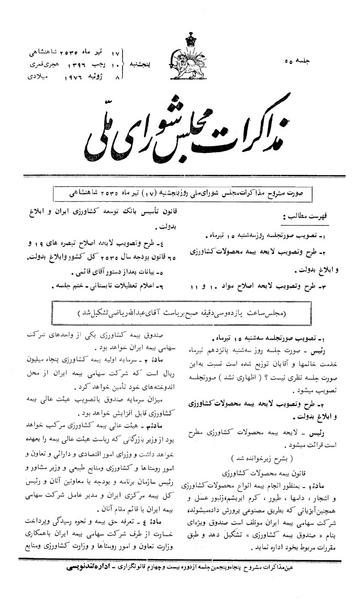 جلسه ۵۵
پنجشنبه
۱۷ تیر ماه ۲۵۳۵ شاهنشاهی
۱۰ رجب ۱۳۹۶ هجری قمری
۸ ژوئیه ۱۹۷۶ میلادی
مذاکرات مجلس شورای ملی
صورت مشروح مذاکرات مجلس شورای ملی روز پنجشنبه (۱۷) تیر ماه ۲۵۳۵ شاهنشاهی
فهرست مطالب :
۱- تصویب صورتجلسه روز سه‌شنبه ۱۵ تیرماه.
۲- طرح و تصویب لایحه بیمه محصولات کشاورزی
و ابلاغ بدولت.
۳- طرح و تصویب لایحه اصلاح مواد ۱۰ و ۱۱
قانون تأسیس بانک توسعه کشاورزی ایران و ابلاغ
بدولت.
۴- طرح و تصویب لایحه اصلاح تبصره های ۱۹ و
۶۵ قانون بودجه سال ۲۵۳۵ کل کشور و ابلاغ بدولت.
۵- بیانات بعد از دستور آقای قائمی.
۶- اعلام تعطیلات تابستانی - ختم جلسه.
(مجلس ساعت یازده و سی دقیقه صبح بریاست آقای عبدالله ریاضی تشکیل شد)
۱- تصویب صورتجلسه سه‌شنبه ۱۵ تیرماه.
رئیس - صورت جلسه روز سه‌شنبه پانزدهم تیرماه
خدمت خانمها و آقایان توزیع شده است نسبت به این
صورت جلسه نظری نیست ؟ (اظهاری نشد) صورتجلسه
تصویب میشود.
۲- طرح و تصویب لایحه بیمه محصولات کشاورزی
و ابلاغ بدولت.
رئیس - لایحه بیمه محصولات کشاورزی مطرح
است قرائت میشود.
(بشرح زیر خوانده شد)
قانون بیمه محصولات کشاورزی
ماده۱- بمنظور انجام بیمه انواع محصولات کشاورزی
و اشجار ، دامها ، طیور ، کرم ابریشم و زنبور عسل و
همچنین آبزیانی که بطریق مصنوعی پرورش داده میشود
شرکت سهامی بیمه ایران موظف است صندوق ویژه‌ای
بنام «صندوق بیمه کشاورزی» ، تشکیل دهد و طبق
مقررات مربوط بخود اداره نماید.
صندوق بیمه کشاورزی یکی از واحدهای شرکت
سهامی بیمه ایران خواهد بود.
ماده۲- سرمایه اولیه بیمه کشاورزی پنجاه میلیون
ریال است که شرکت سهامی بیمه ایران از محل
اندوخته‌های خود تأمین خواهد کرد.
میزان سرمایه صندوق باتصویب هیئت عالی بیمه
کشاورزی قابل افزایش خواهد بود.
ماده۳- هیئت عالی بیمه کشاورزی مرکب خواهد
بود از وزیر بازرگانی که ریاست هیئت عالی بیمه را بعهده
خواهد داشت و وزرای امور اقتصادی و دارائی و تعاون و
امور روستاها و کشاورزی ومنابع طبیعی و وزیر مشاور و
رئیس سازمان برنامه و بودجه یا معاونین آنان و رئیس
کل بیمه مرکزی ایران و مدیر عامل شرکت سهامی
بیمه ایران یا قائم مقام آنان.
ماده ۴- تعرفه حق بیمه و نحوه رسیدگی و پرداخت
خسارت از طرف شرکت سهامی بیمه ایران باهمکاری
وزارت تعاون و امور روستاها و وزارت کشاورزی ومنابع
عین مذاکرات مشروح پنجاه و پنجمین جلسه از دوره بیست و چهارم قانونگزاری - اداره تندنویسی